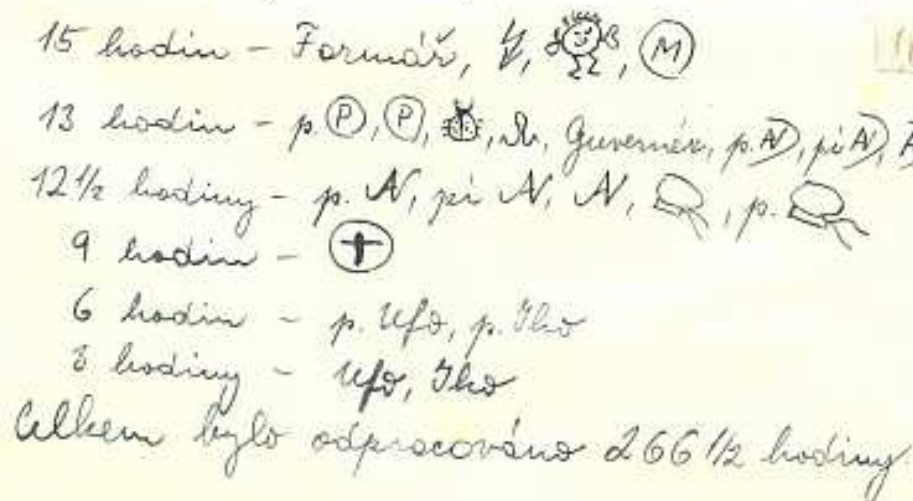 15 hodin - Farmář, M
13 hodin - p. P, P, Guvernér, p. N, pí N,
12 1/2 hodiny - p. N, pí N, N, , p.
9 hodin -
6 hodin - p. Ufo, p. Iko
3 hodiny - Ufo, Iko
Celkem bylo odpracováno 266 1/2 hodiny.